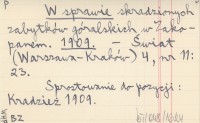 P
W sprawie skradzionych
zabytków góralskich w Zako-
panem. 1909. - Świat
(Warszawa-Kraków) 4, nr 11:
23.
Sprostowanie do pozycji:
Kradzież 1909.
BZ